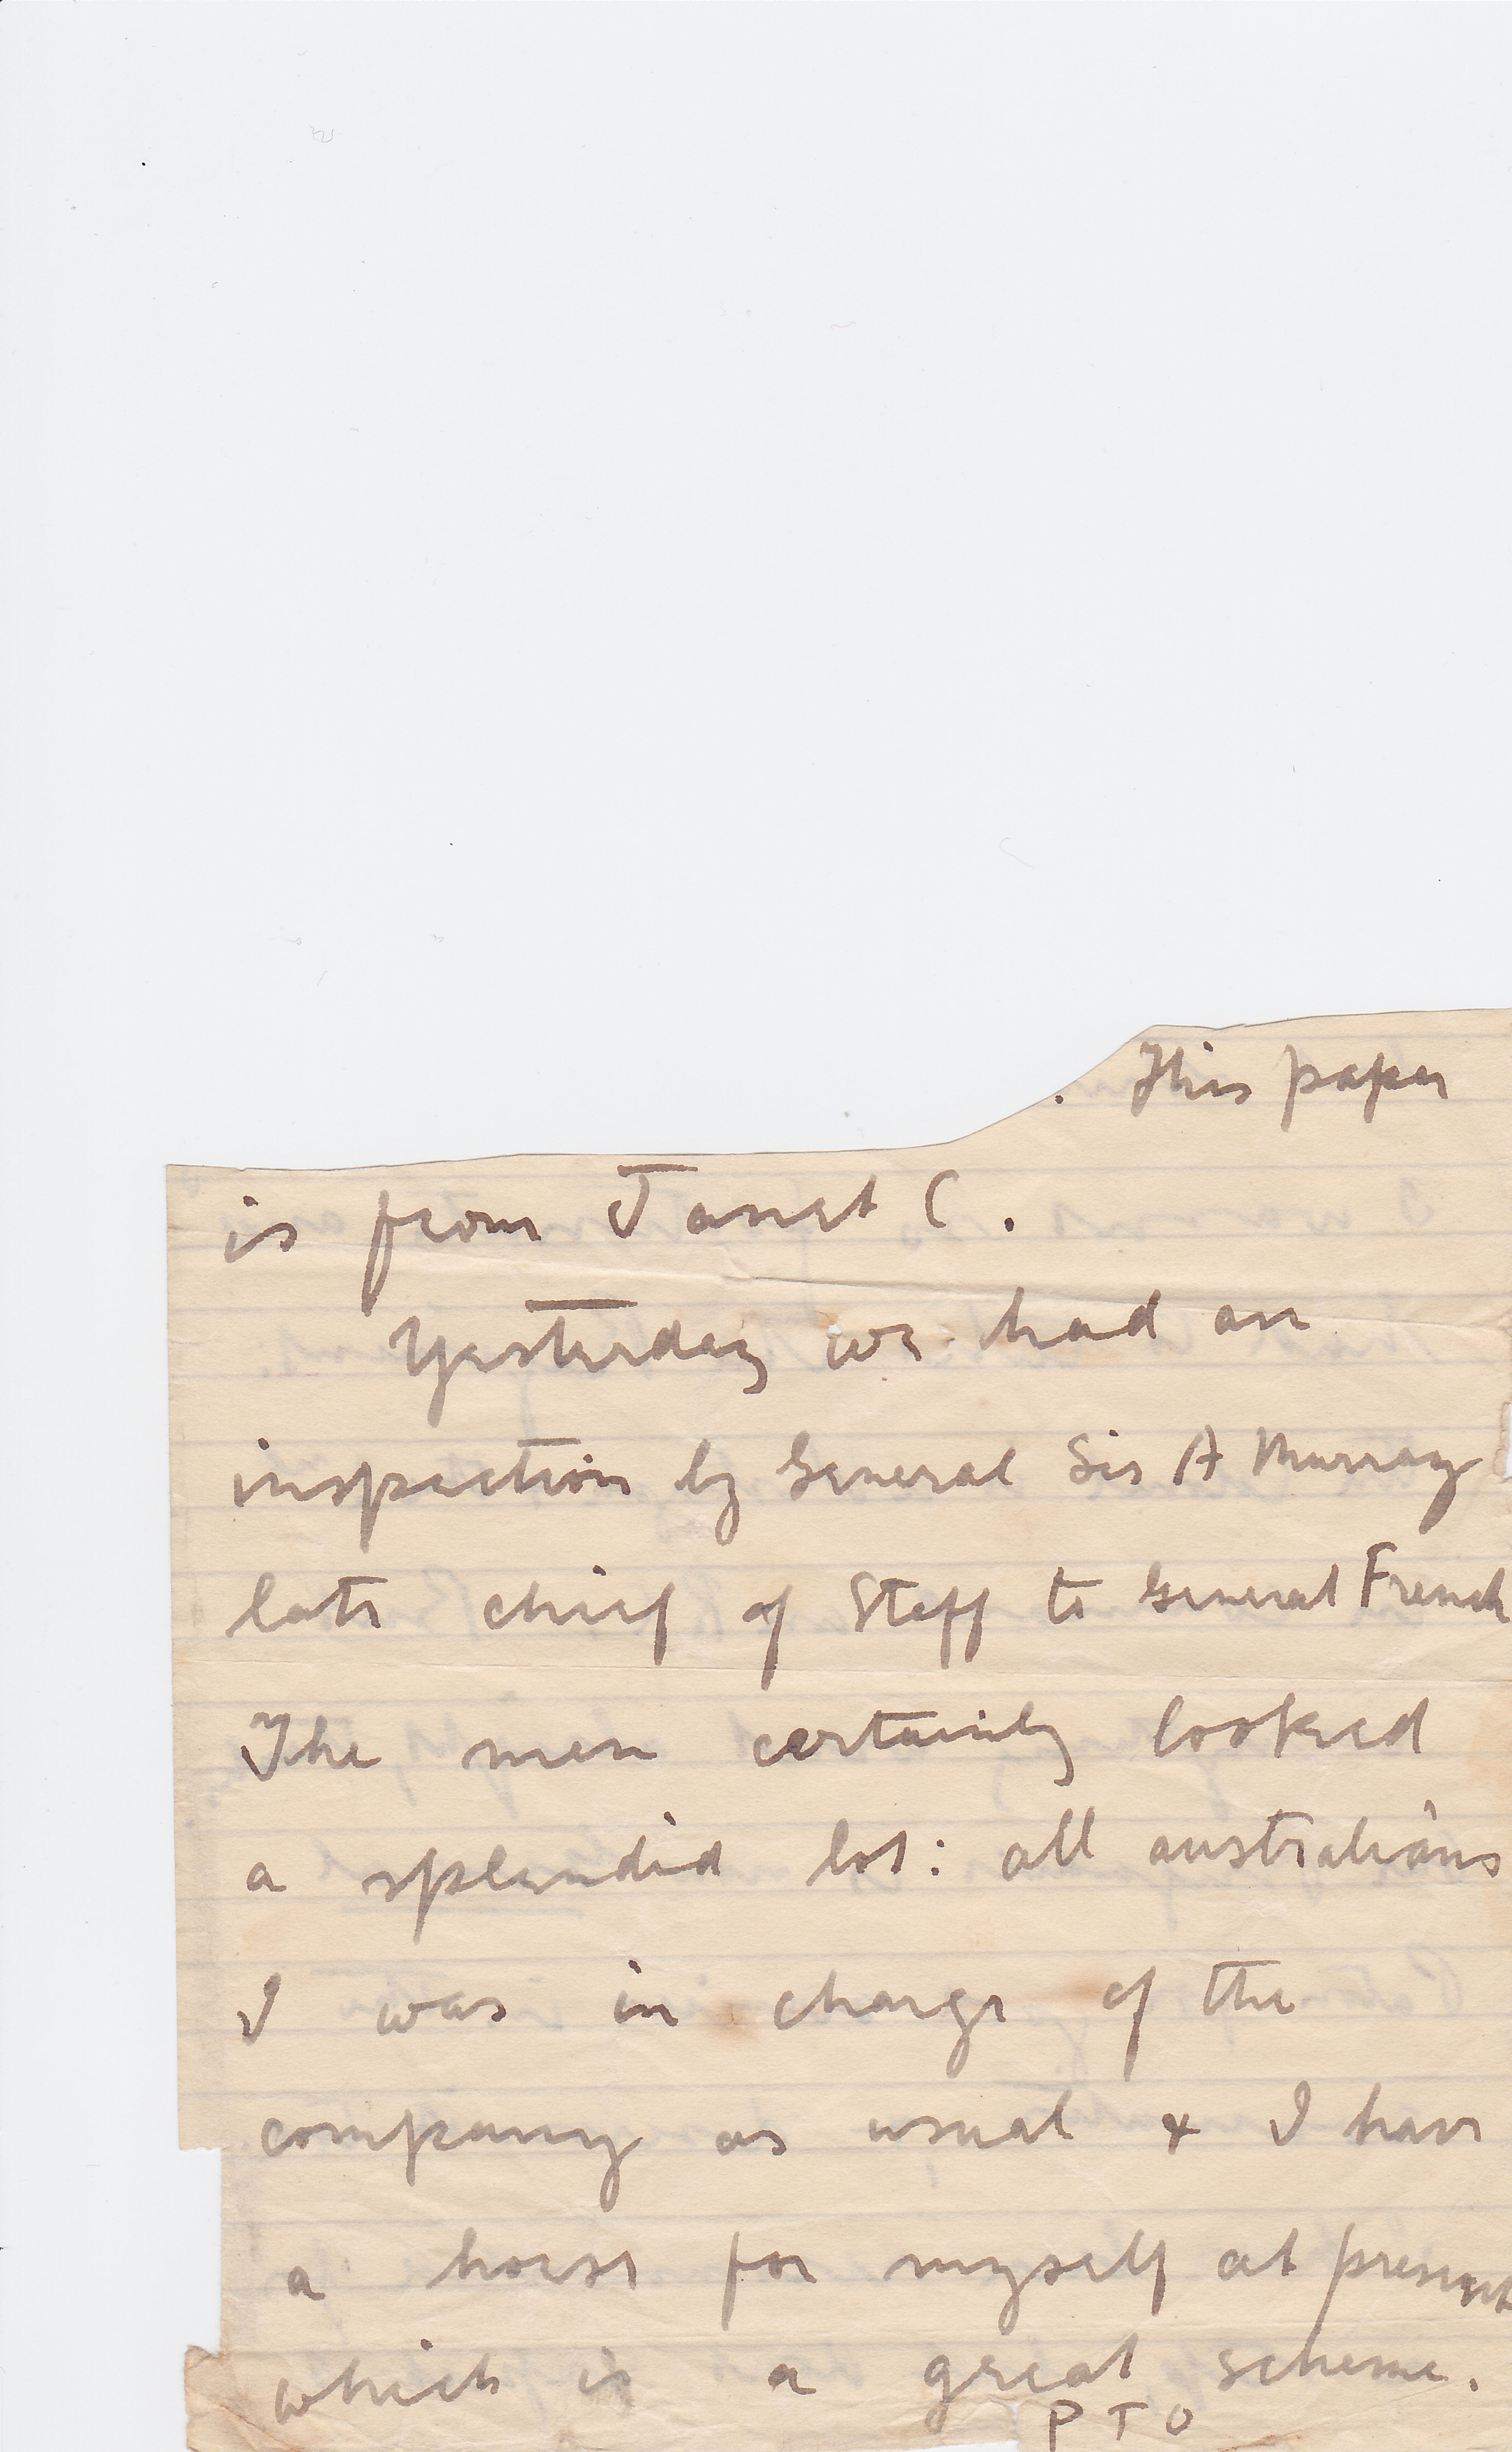 . This paper
is from Janet C.
Yesterday we had an
inspection by General Sir A Murray
late chief of Staff to General French
The men certainly looked
a splendid lot: all australians
I was in charge of the
company as usual & I have
a horse for myself at present
which is a great scheme.
P T O